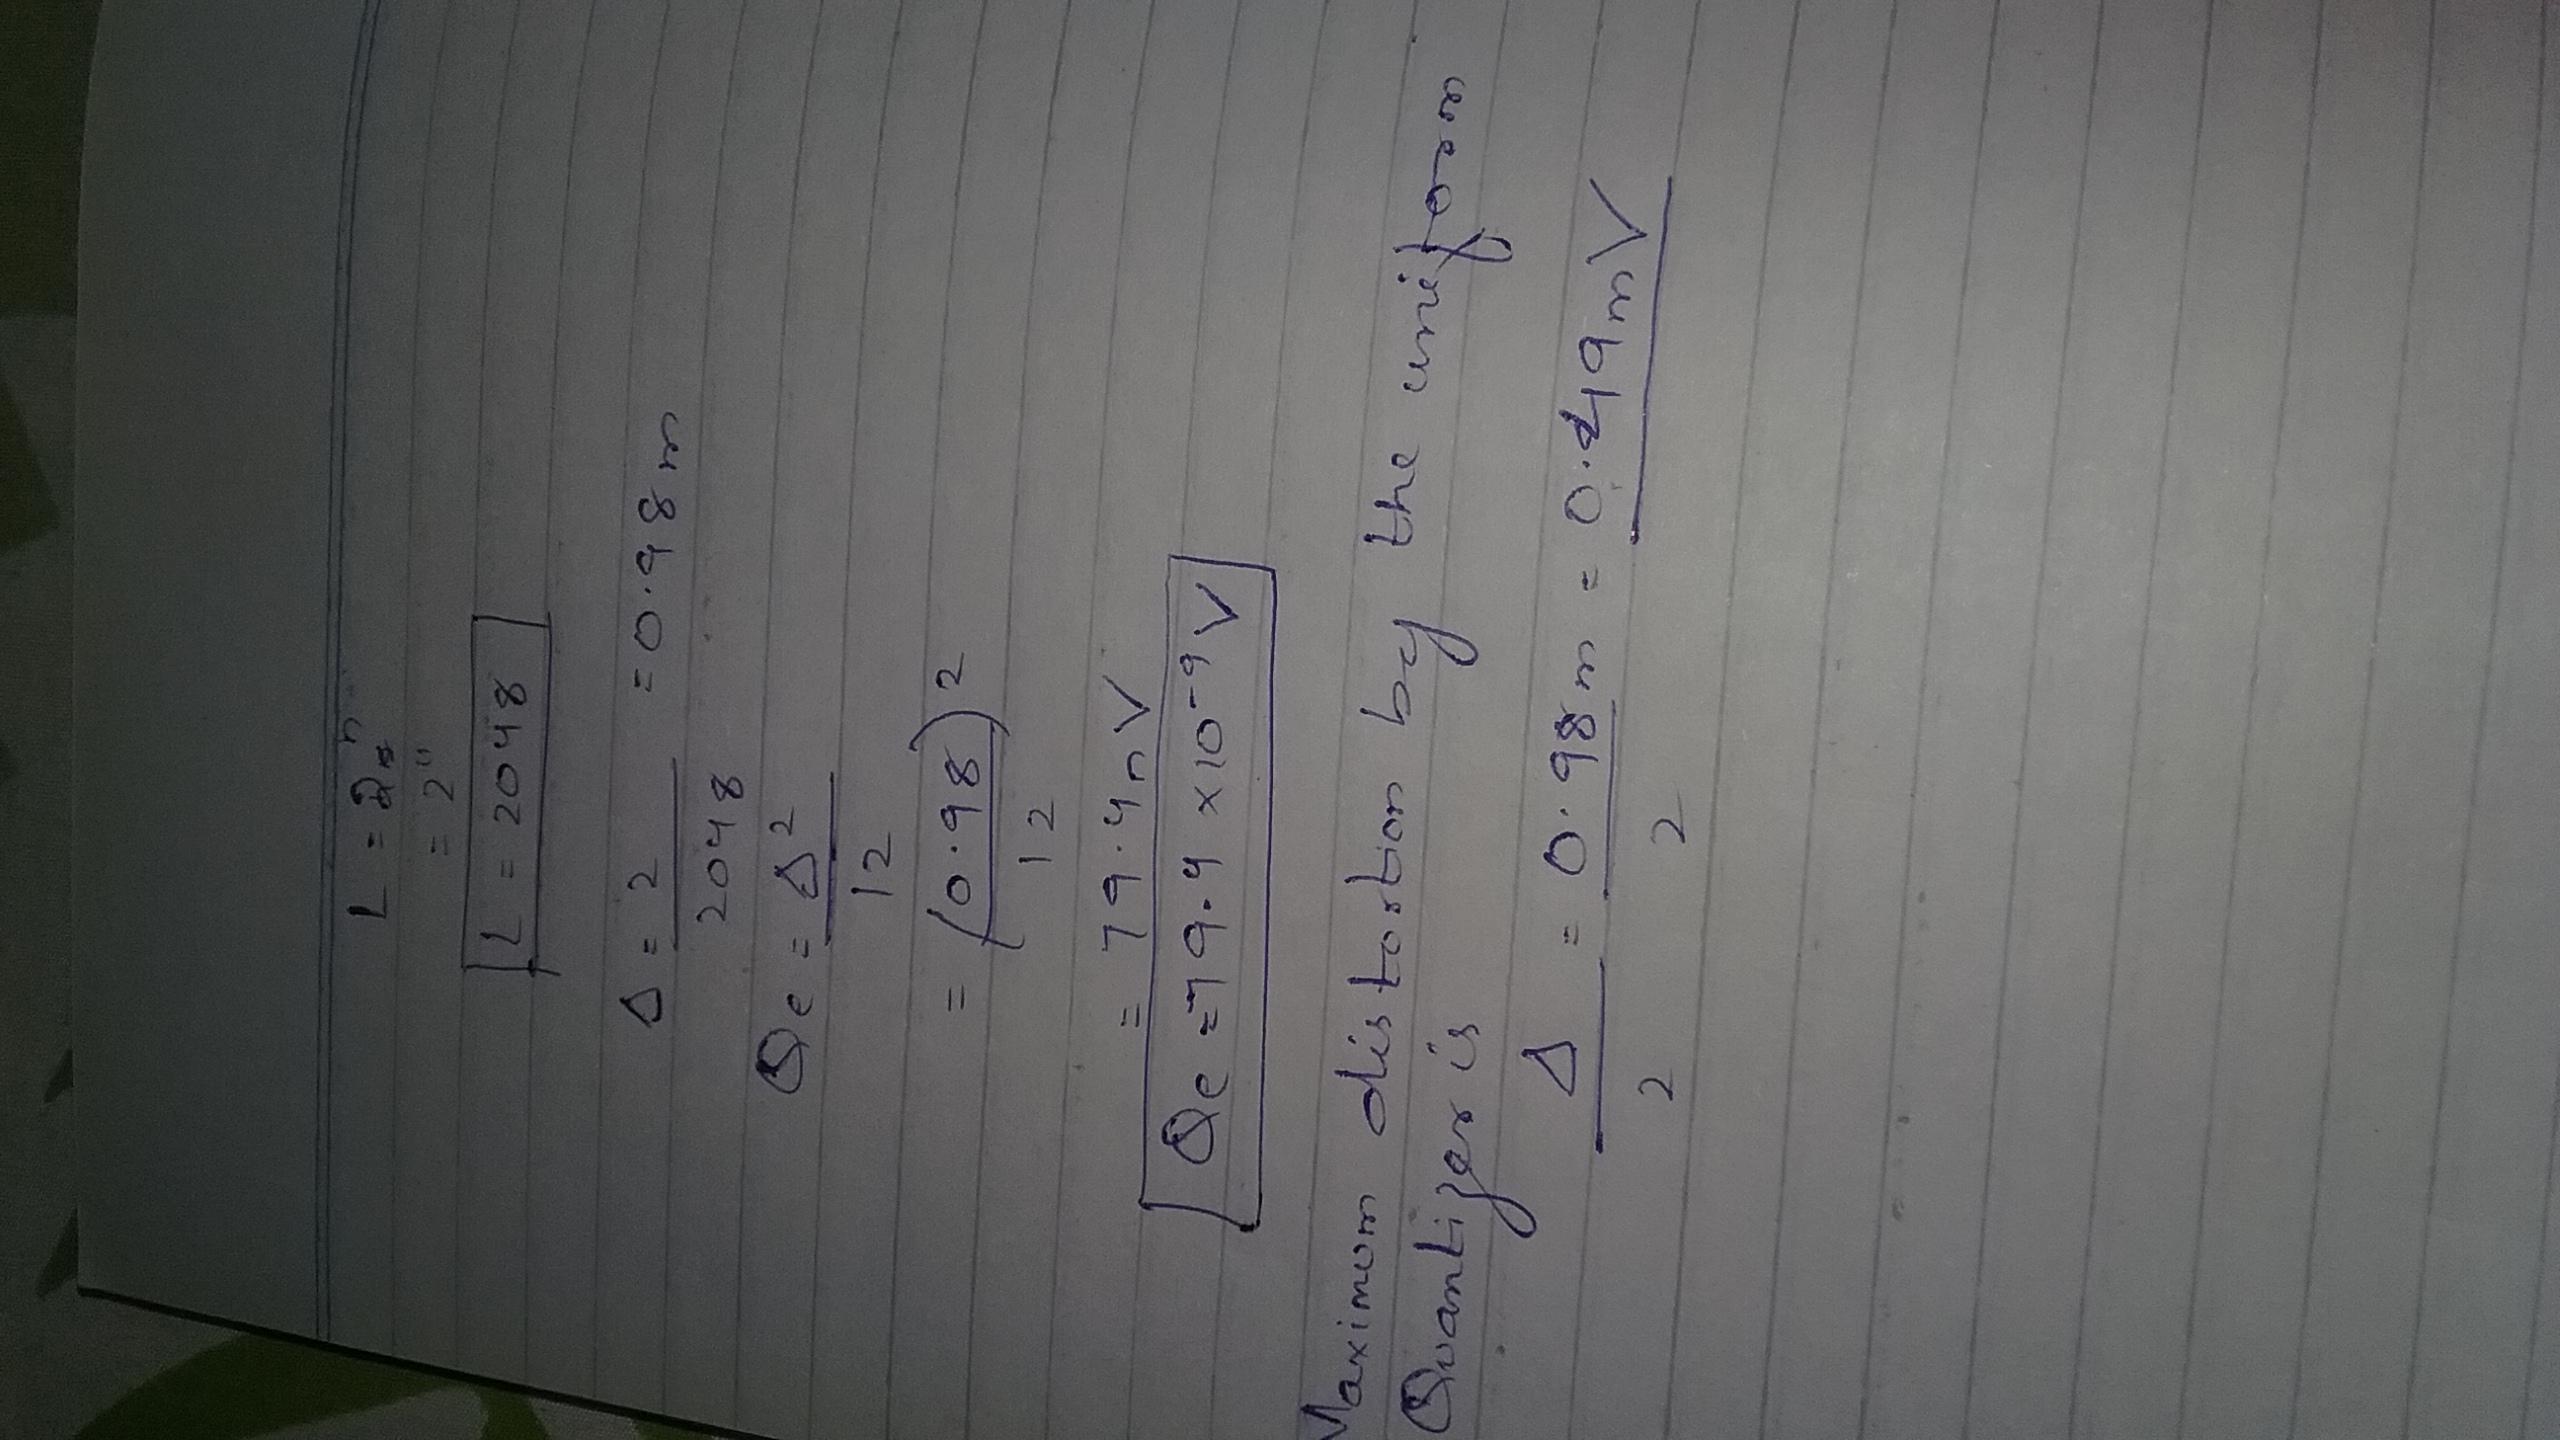 L = 2ⁿ
= 2¹¹
L = 2048
Δ = 2/2048 = 0.98m
Qe = Δ²/12
= (0.98)²/12
= 79.4nV
Qe = 79.4 × 10⁻⁹ V
Maximum distortion by the uniform
Quantizer is
Δ/2 = 0.98m/2 = 0.49mV